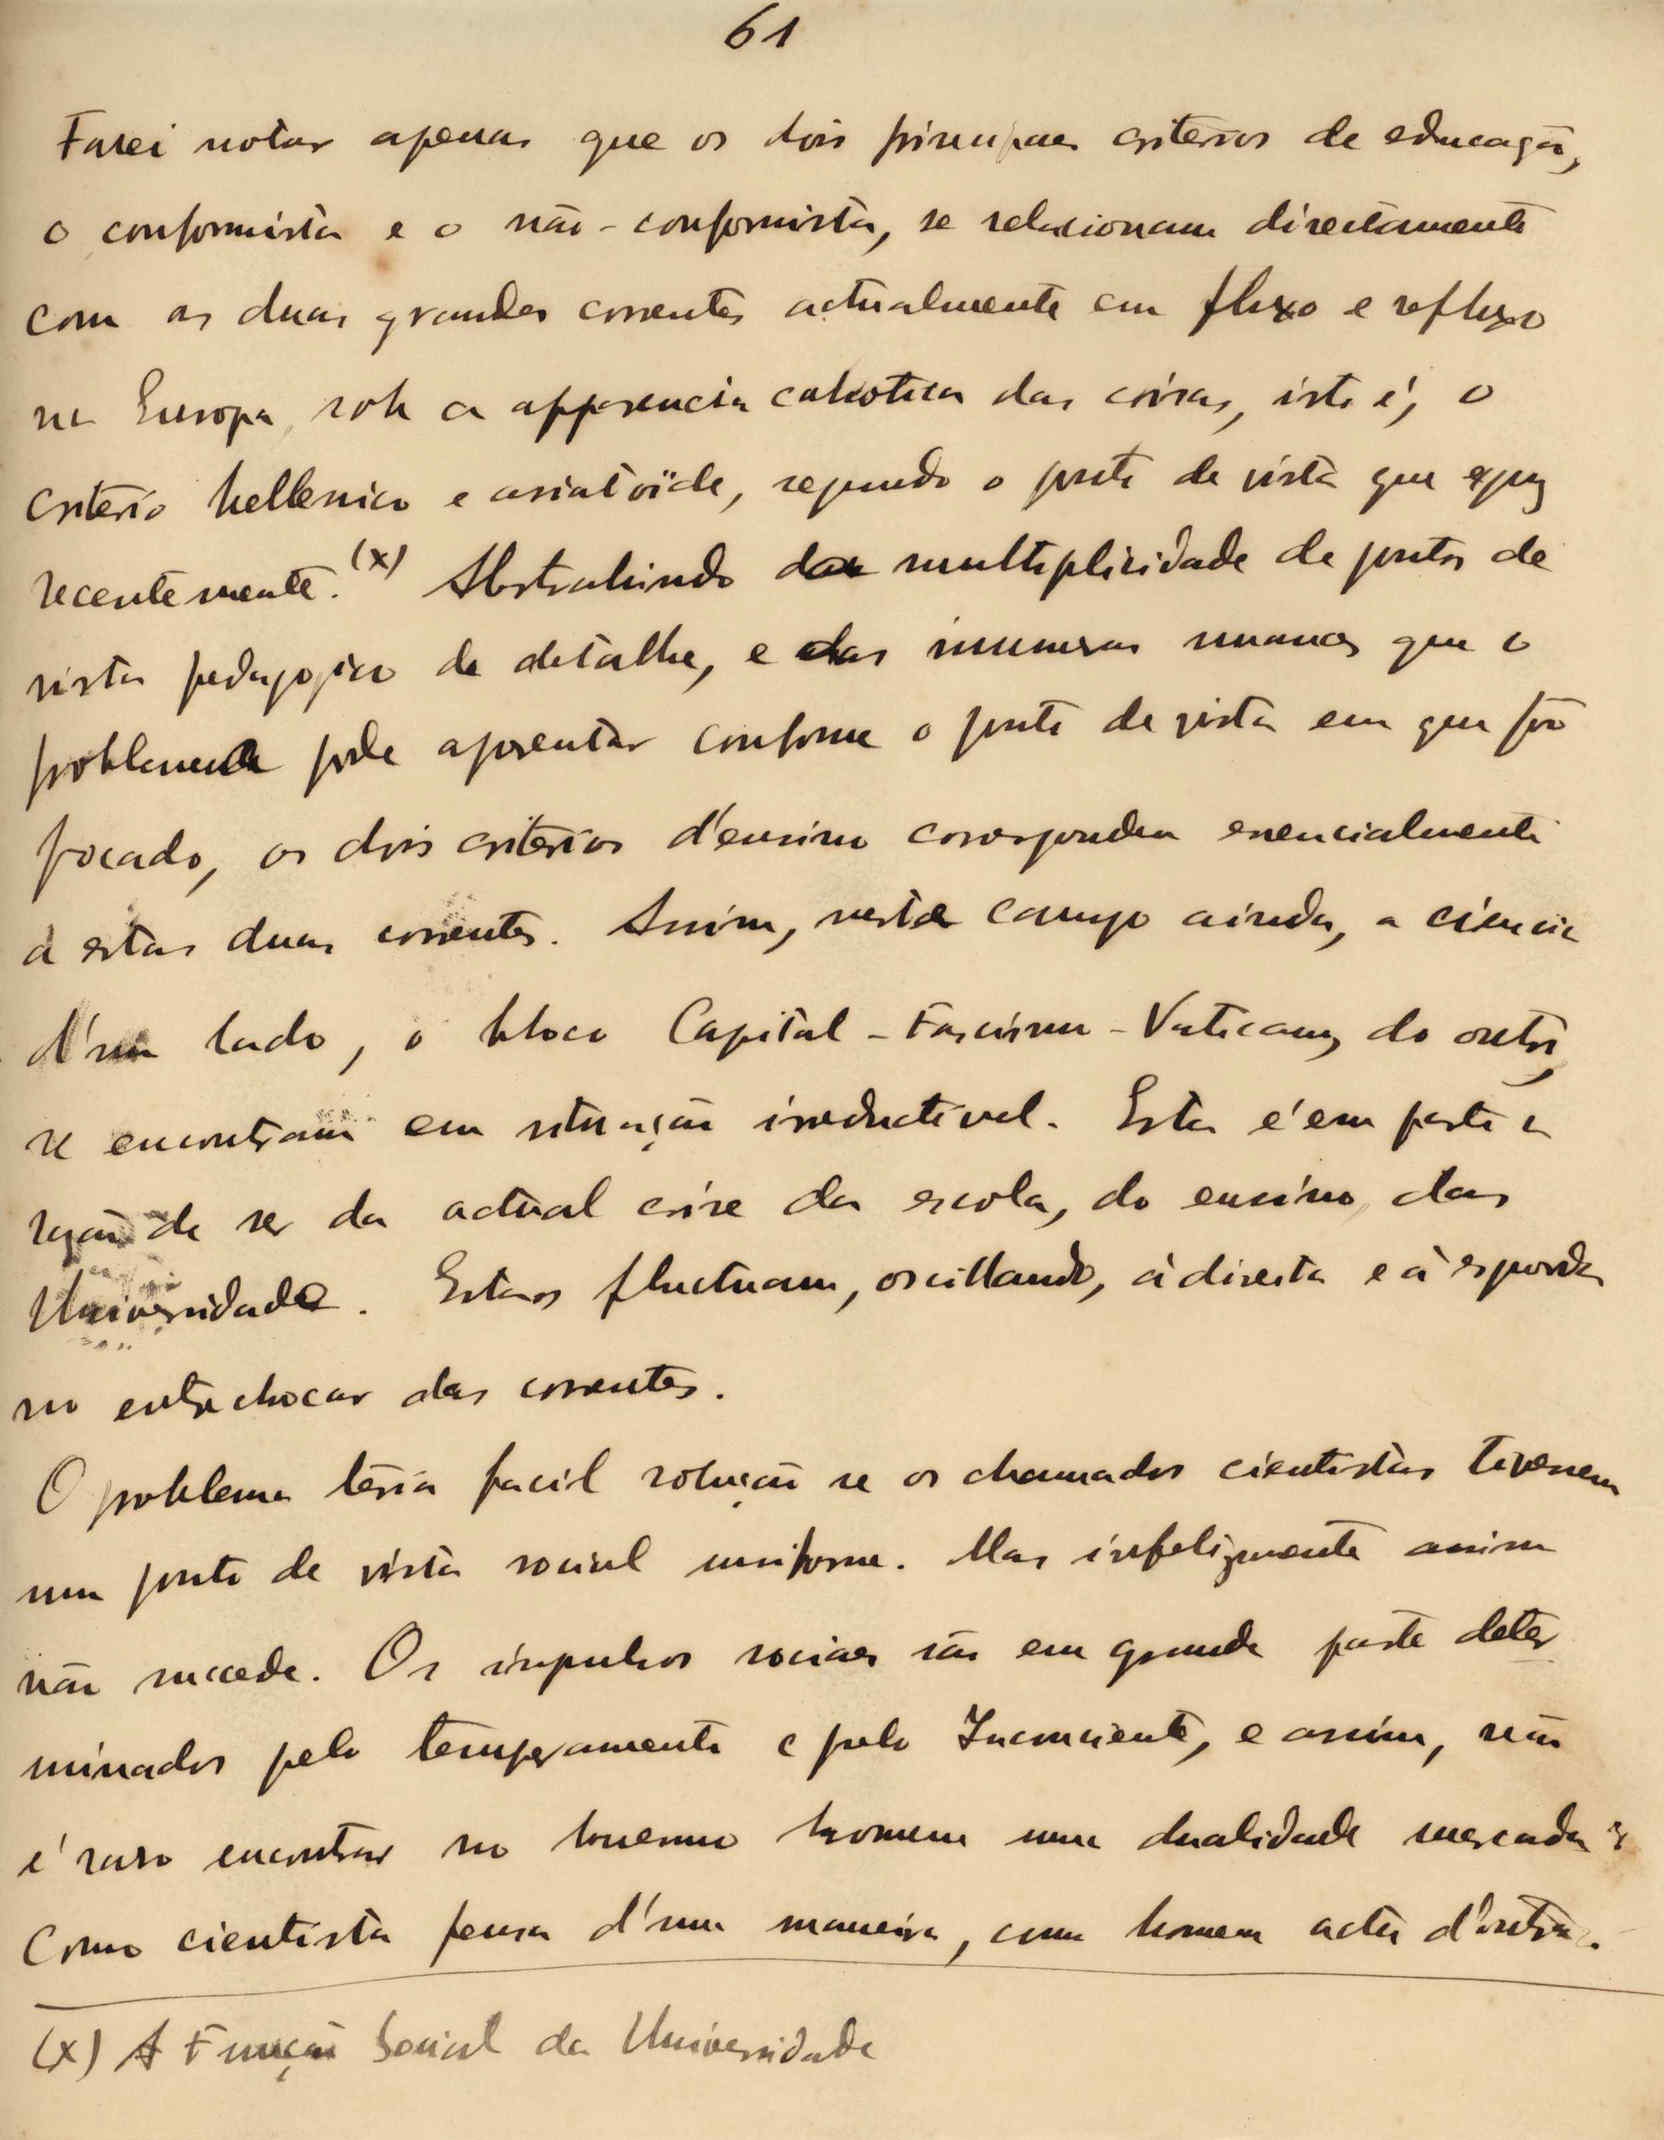 61
Farei notar apenas que os dois principaes criterios de educação,
o conformista e o não-conformista, se relacionam directamente
com as duas grandes correntes actualmente em fluxo e refluxo
na Europa, sob a apparencia cahotica das coisas, isto é, o
criterio hellenico e asiatoïde, segundo o ponto de vista que expuz
recentemente. (x) Abstrahindo da multiplicidade de pontos de
vista pedagogico de detalhe, e das inumeras nuances que o
problema pode apresentar conforme o ponto de vista em que fôr
focado, os dois criterios d'ensino correspondem essencialmente
a estas duas correntes. Assim, neste campo ainda, a ciencia
d'um lado, o bloco Capital-Fascismo-Vaticano, do outro,
se encontram em situação irreductivel. Esta é em parte a
razão de ser da actual crise da escola, do ensino, das
Universidades. Estas fluctuam, oscillando, à direita e à esquerda
no entrechocar das correntes.
O problema teria facil solução se os chamados cientistas tivessem
um ponto de vista social uniforme. Mas infelizmente assim
não succede. Os impulsos sociaes são em grande parte deter
minados pelo temperamento e pelo Inconsciente, e assim, não
é raro encontrar no mesmo homem uma dualidade marcada:
Como cientista pensa d'uma maneira, como homem actua d'outra.
(x) A Função Social da Universidade